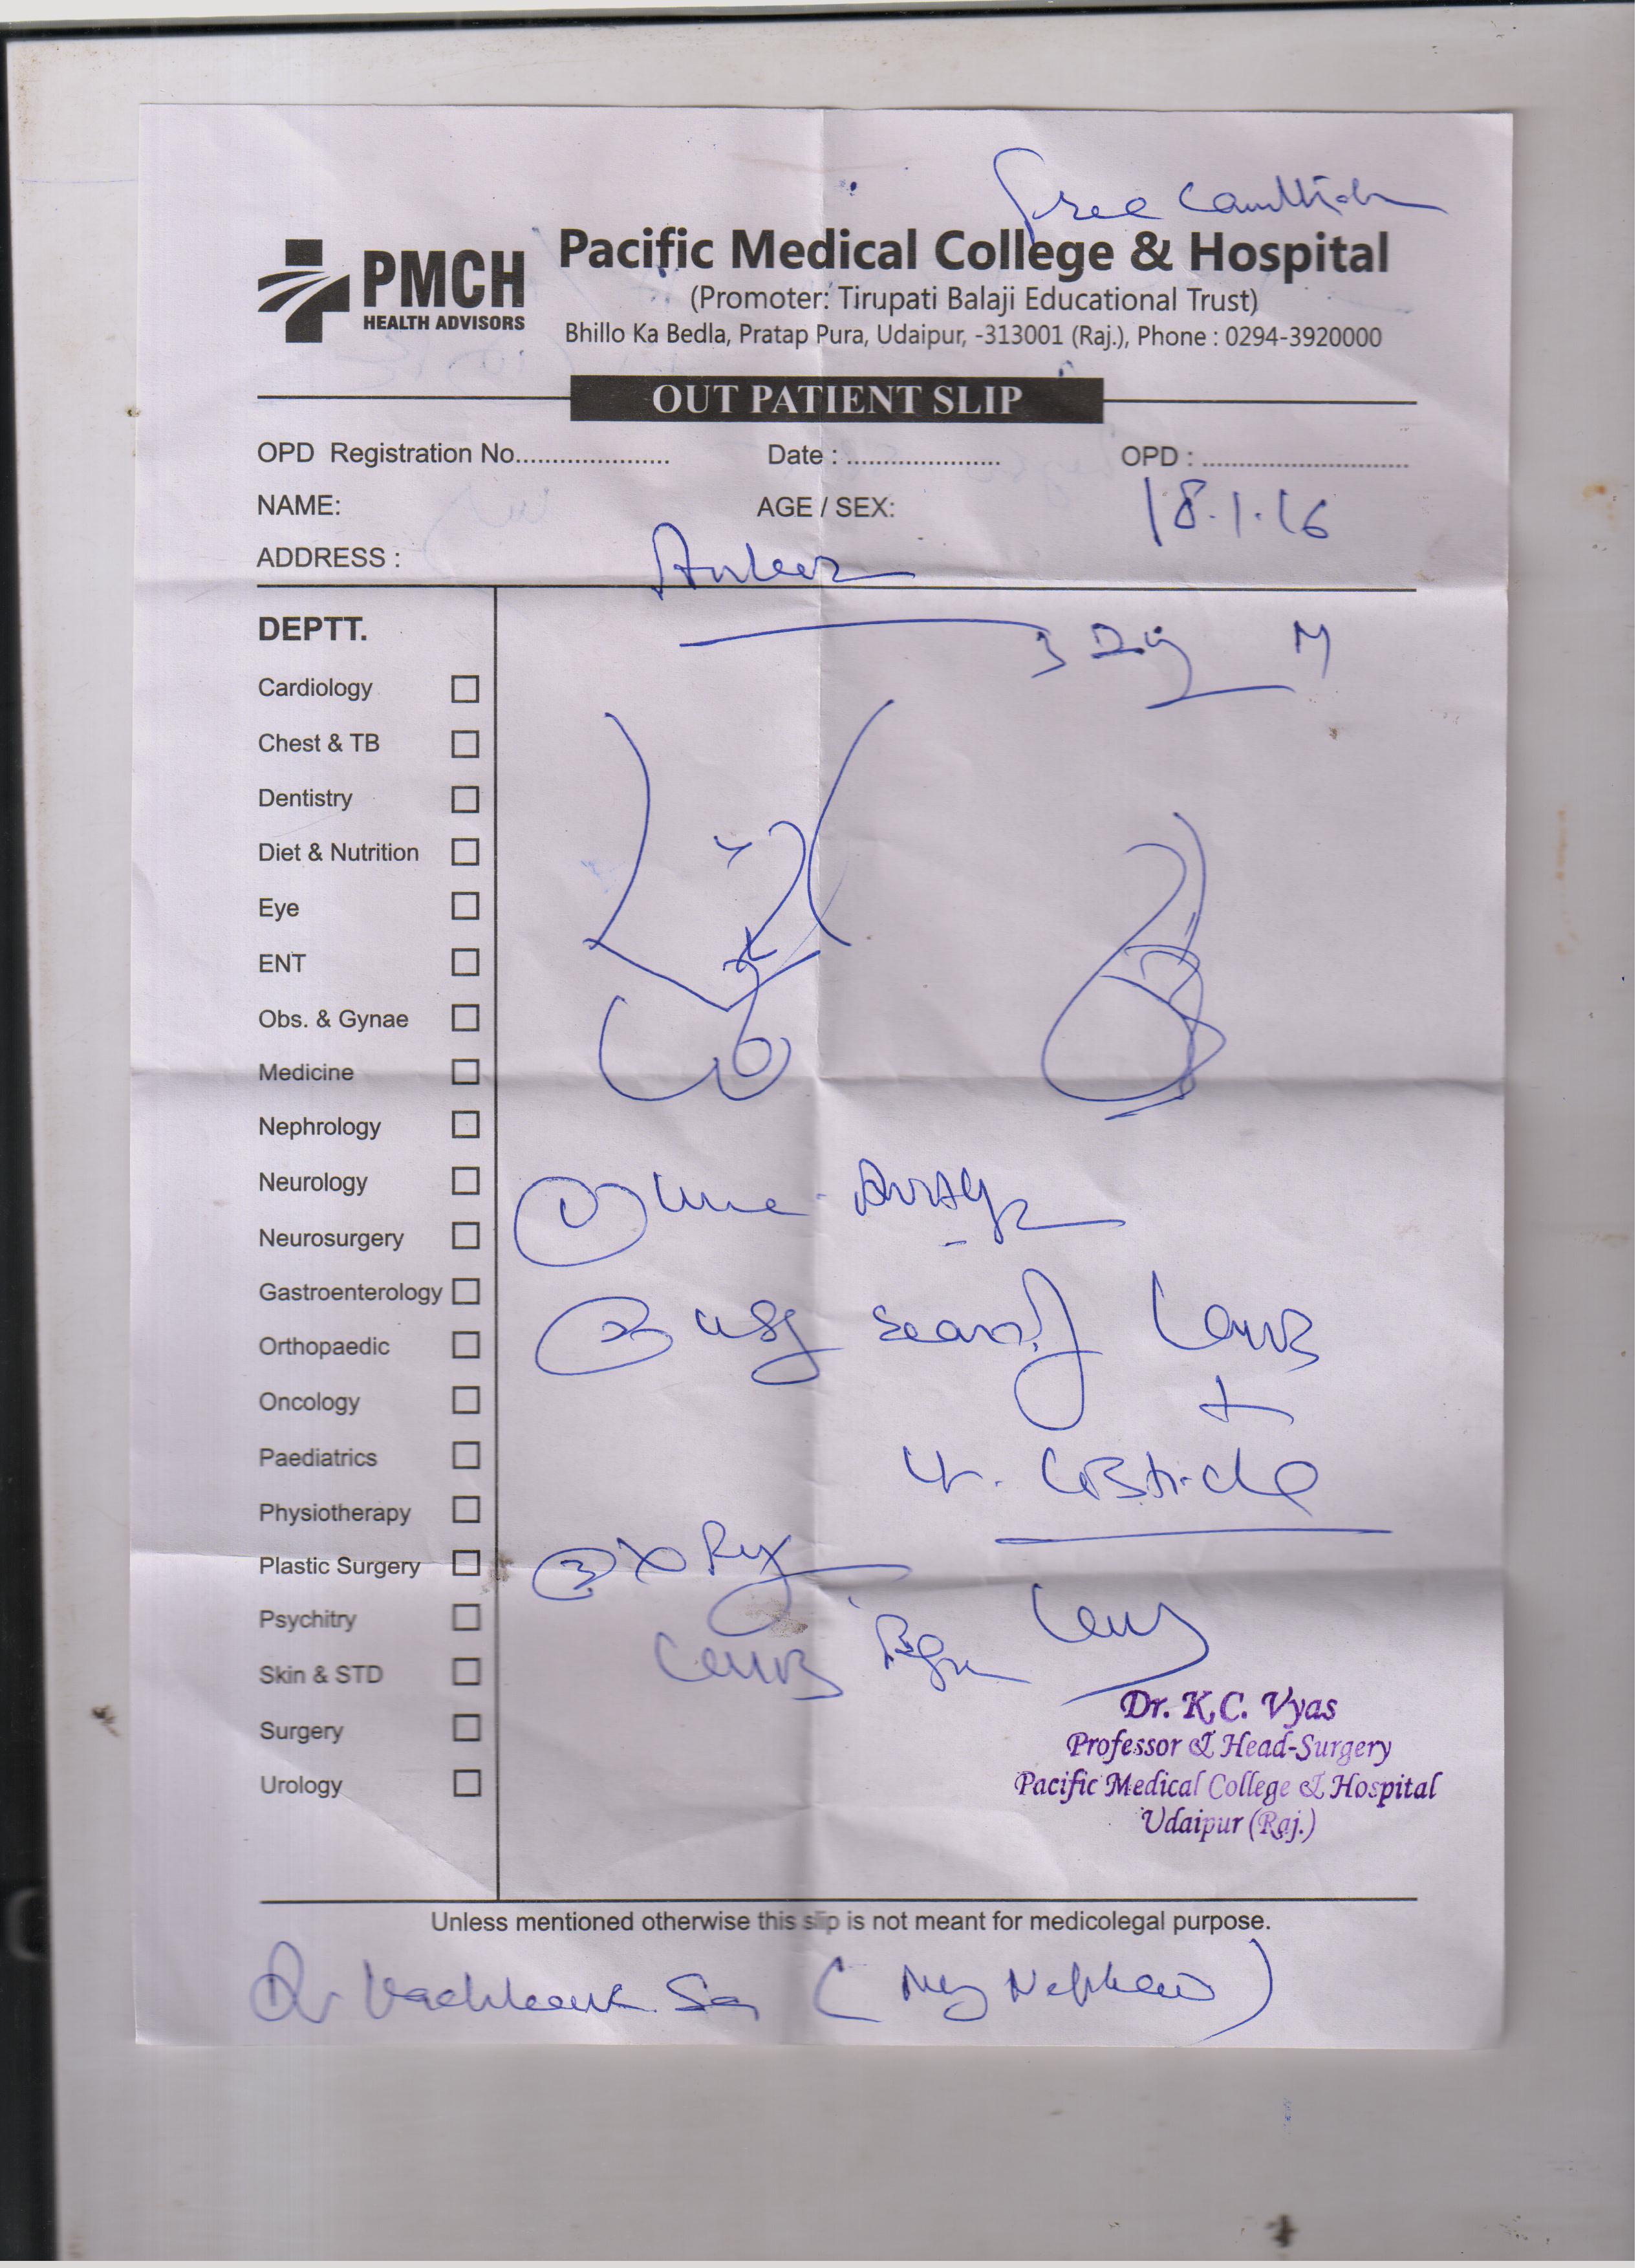 Free
PMCH
HEALTH ADVISORS
Pacific Medical College & Hospital
(Promoter: Tirupati Balaji Educational Trust)
Bhillo Ka Bedla, Pratap Pura, Udaipur, -313001 (Raj.), Phone : 0294-3920000
OUT PATIENT SLIP
OPD Registration No..................... Date : ..................... OPD : ............................
NAME: AGE / SEX: 18.1.16
ADDRESS :
DEPTT.
3 M
Cardiology
Chest & TB
Dentistry
Diet & Nutrition
Eye
ENT
Obs. & Gynae
Medicine
Nephrology
Neurology
Neurosurgery
Gastroenterology
Orthopaedic
Oncology
Paediatrics
Physiotherapy
Plastic Surgery
Psychitry
Skin & STD
Surgery
Urology
①
② USG
+
③ X Ray
Dr. K.C. Vyas
Professor & Head-Surgery
Pacific Medical College & Hospital
Udaipur (Raj.)
Unless mentioned otherwise this slip is not meant for medicolegal purpose.
Dr (My Nephew)